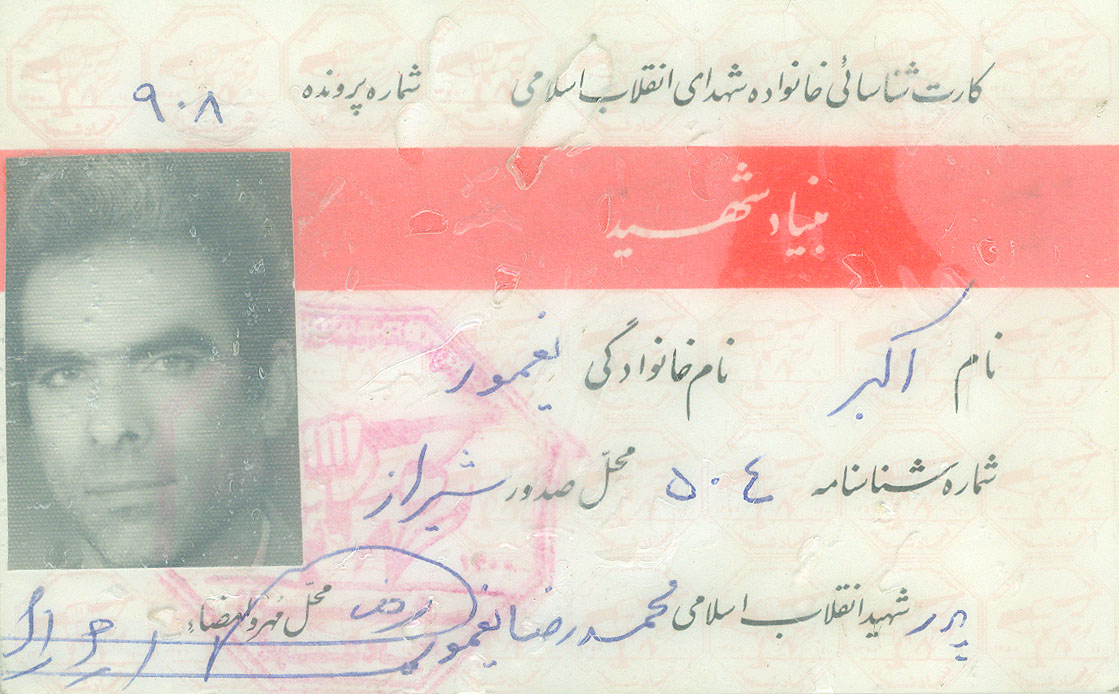 کارت شناسائی خانواده شهدای انقلاب اسلامی شماره پرونده ۹۰۸
بنیاد شهید
نام اکبر نام خانوادگی نعمور
شماره شناسنامه ۵۰۴ محلّ صدور شیراز
پدر شهید انقلاب اسلامی محمد رضا نعمور محلّ مهر و امضاء